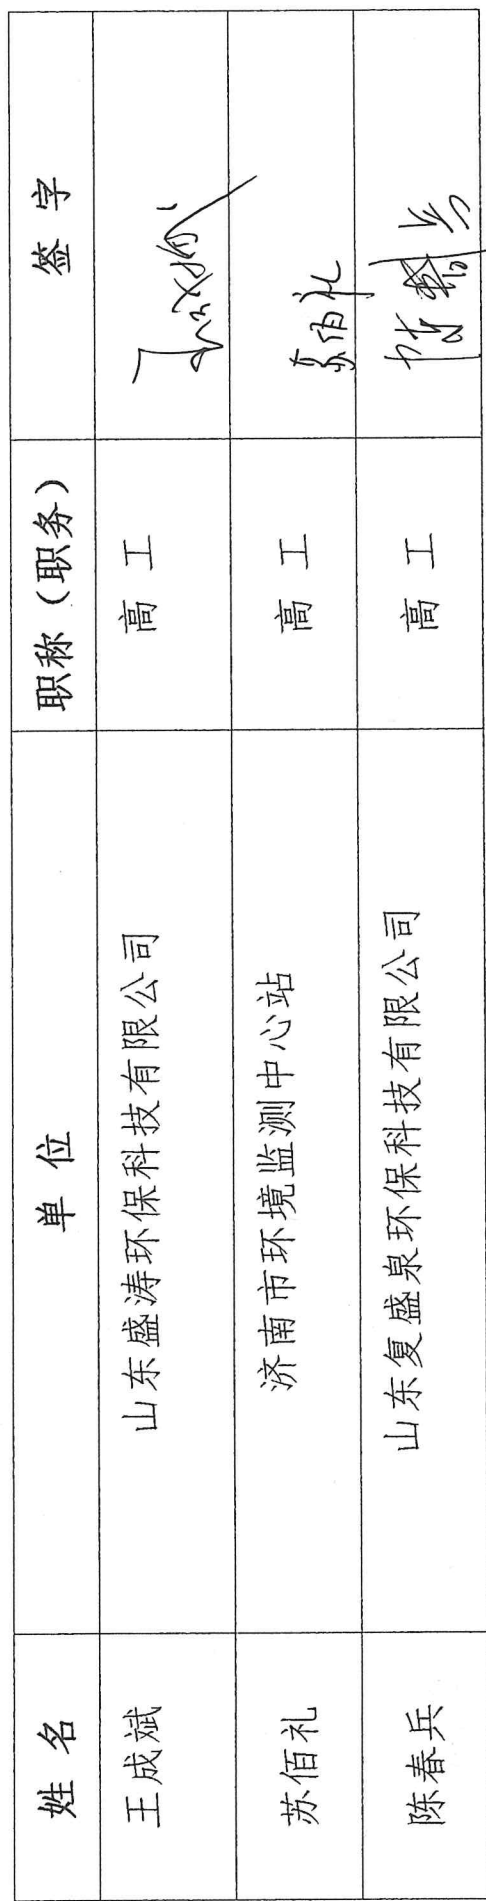 姓名 单位 职称（职务） 签字
王成斌 山东盛涛环保科技有限公司 高工
苏佰礼 济南市环境监测中心站 高工 苏佰礼
陈春兵 山东复盛泉环保科技有限公司 高工